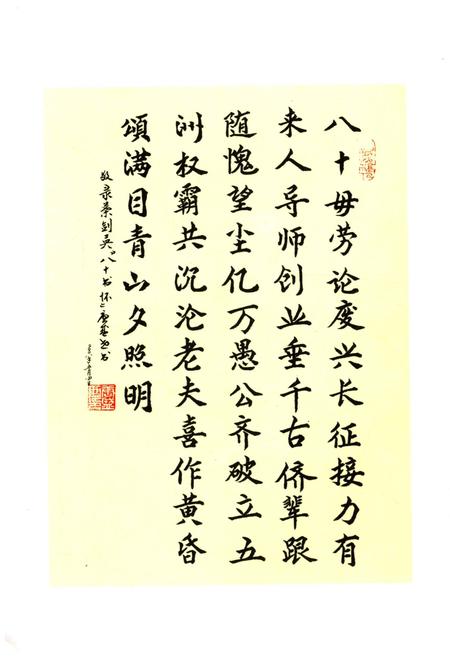 八十毋劳论废兴长征接力有
来人导师创业垂千古侪辈跟
随愧望尘亿万愚公齐破立五
洲权霸共沉沦老夫喜作黄昏
頌满目青山夕照明
敬录葉剑英八十书怀